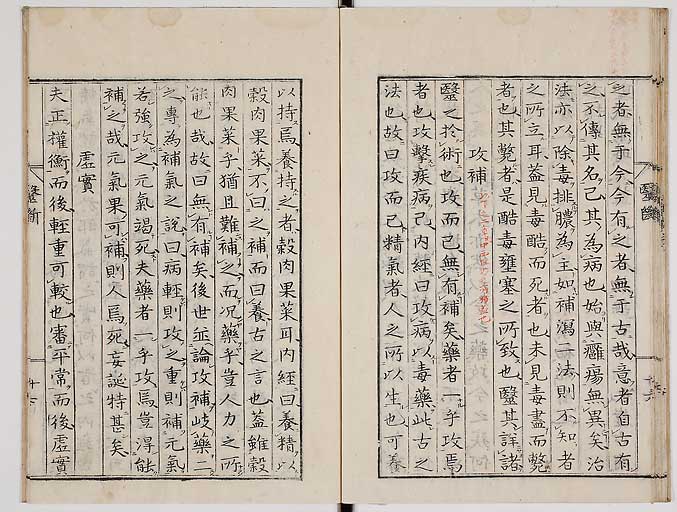 之者無于今今有之者無于古哉意者自古有
之不傳其名已其為病也始與癰瘍無異矣治
法亦以除毒排膿為主如補瀉二法則不知者
之所立耳蓋見毒酷而死者也未見毒盡而斃
者也其斃者是酷毒壅塞之所致也毉其詳諸
攻補
毉之於術也攻而已無有補矣藥者一乎攻焉
者也攻擊疾病已內經曰攻病以毒藥此古之
法也故曰攻而已精氣者人之所以生也可養
以持焉養持之者穀肉果菜耳內經曰養精以
穀肉果菜不曰之補而曰養古之言也蓋雖穀
肉果菜乎猶且難補之而况藥乎豈人力之所
能也哉故曰無有補矣後世並論攻補岐藥二
之專為補氣之說曰病輕則攻之重則補元氣
若強攻之元氣竭死夫藥者一乎攻焉豈得能
補之哉元氣果可補則人焉死妄誕特甚矣
虛實
夫正權衡而後輕重可較也審平常而後虛實
毉斷
十六